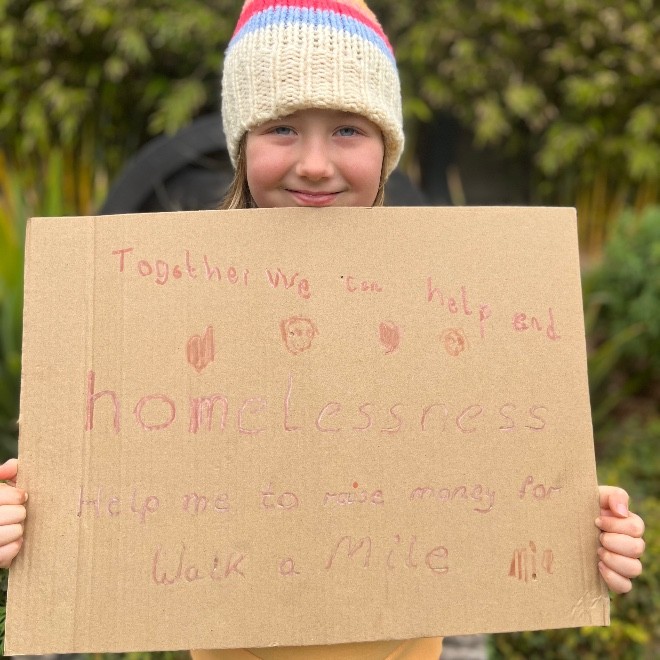 Together We can help end
homelessness
Help me to raise money for
Walk a Mile